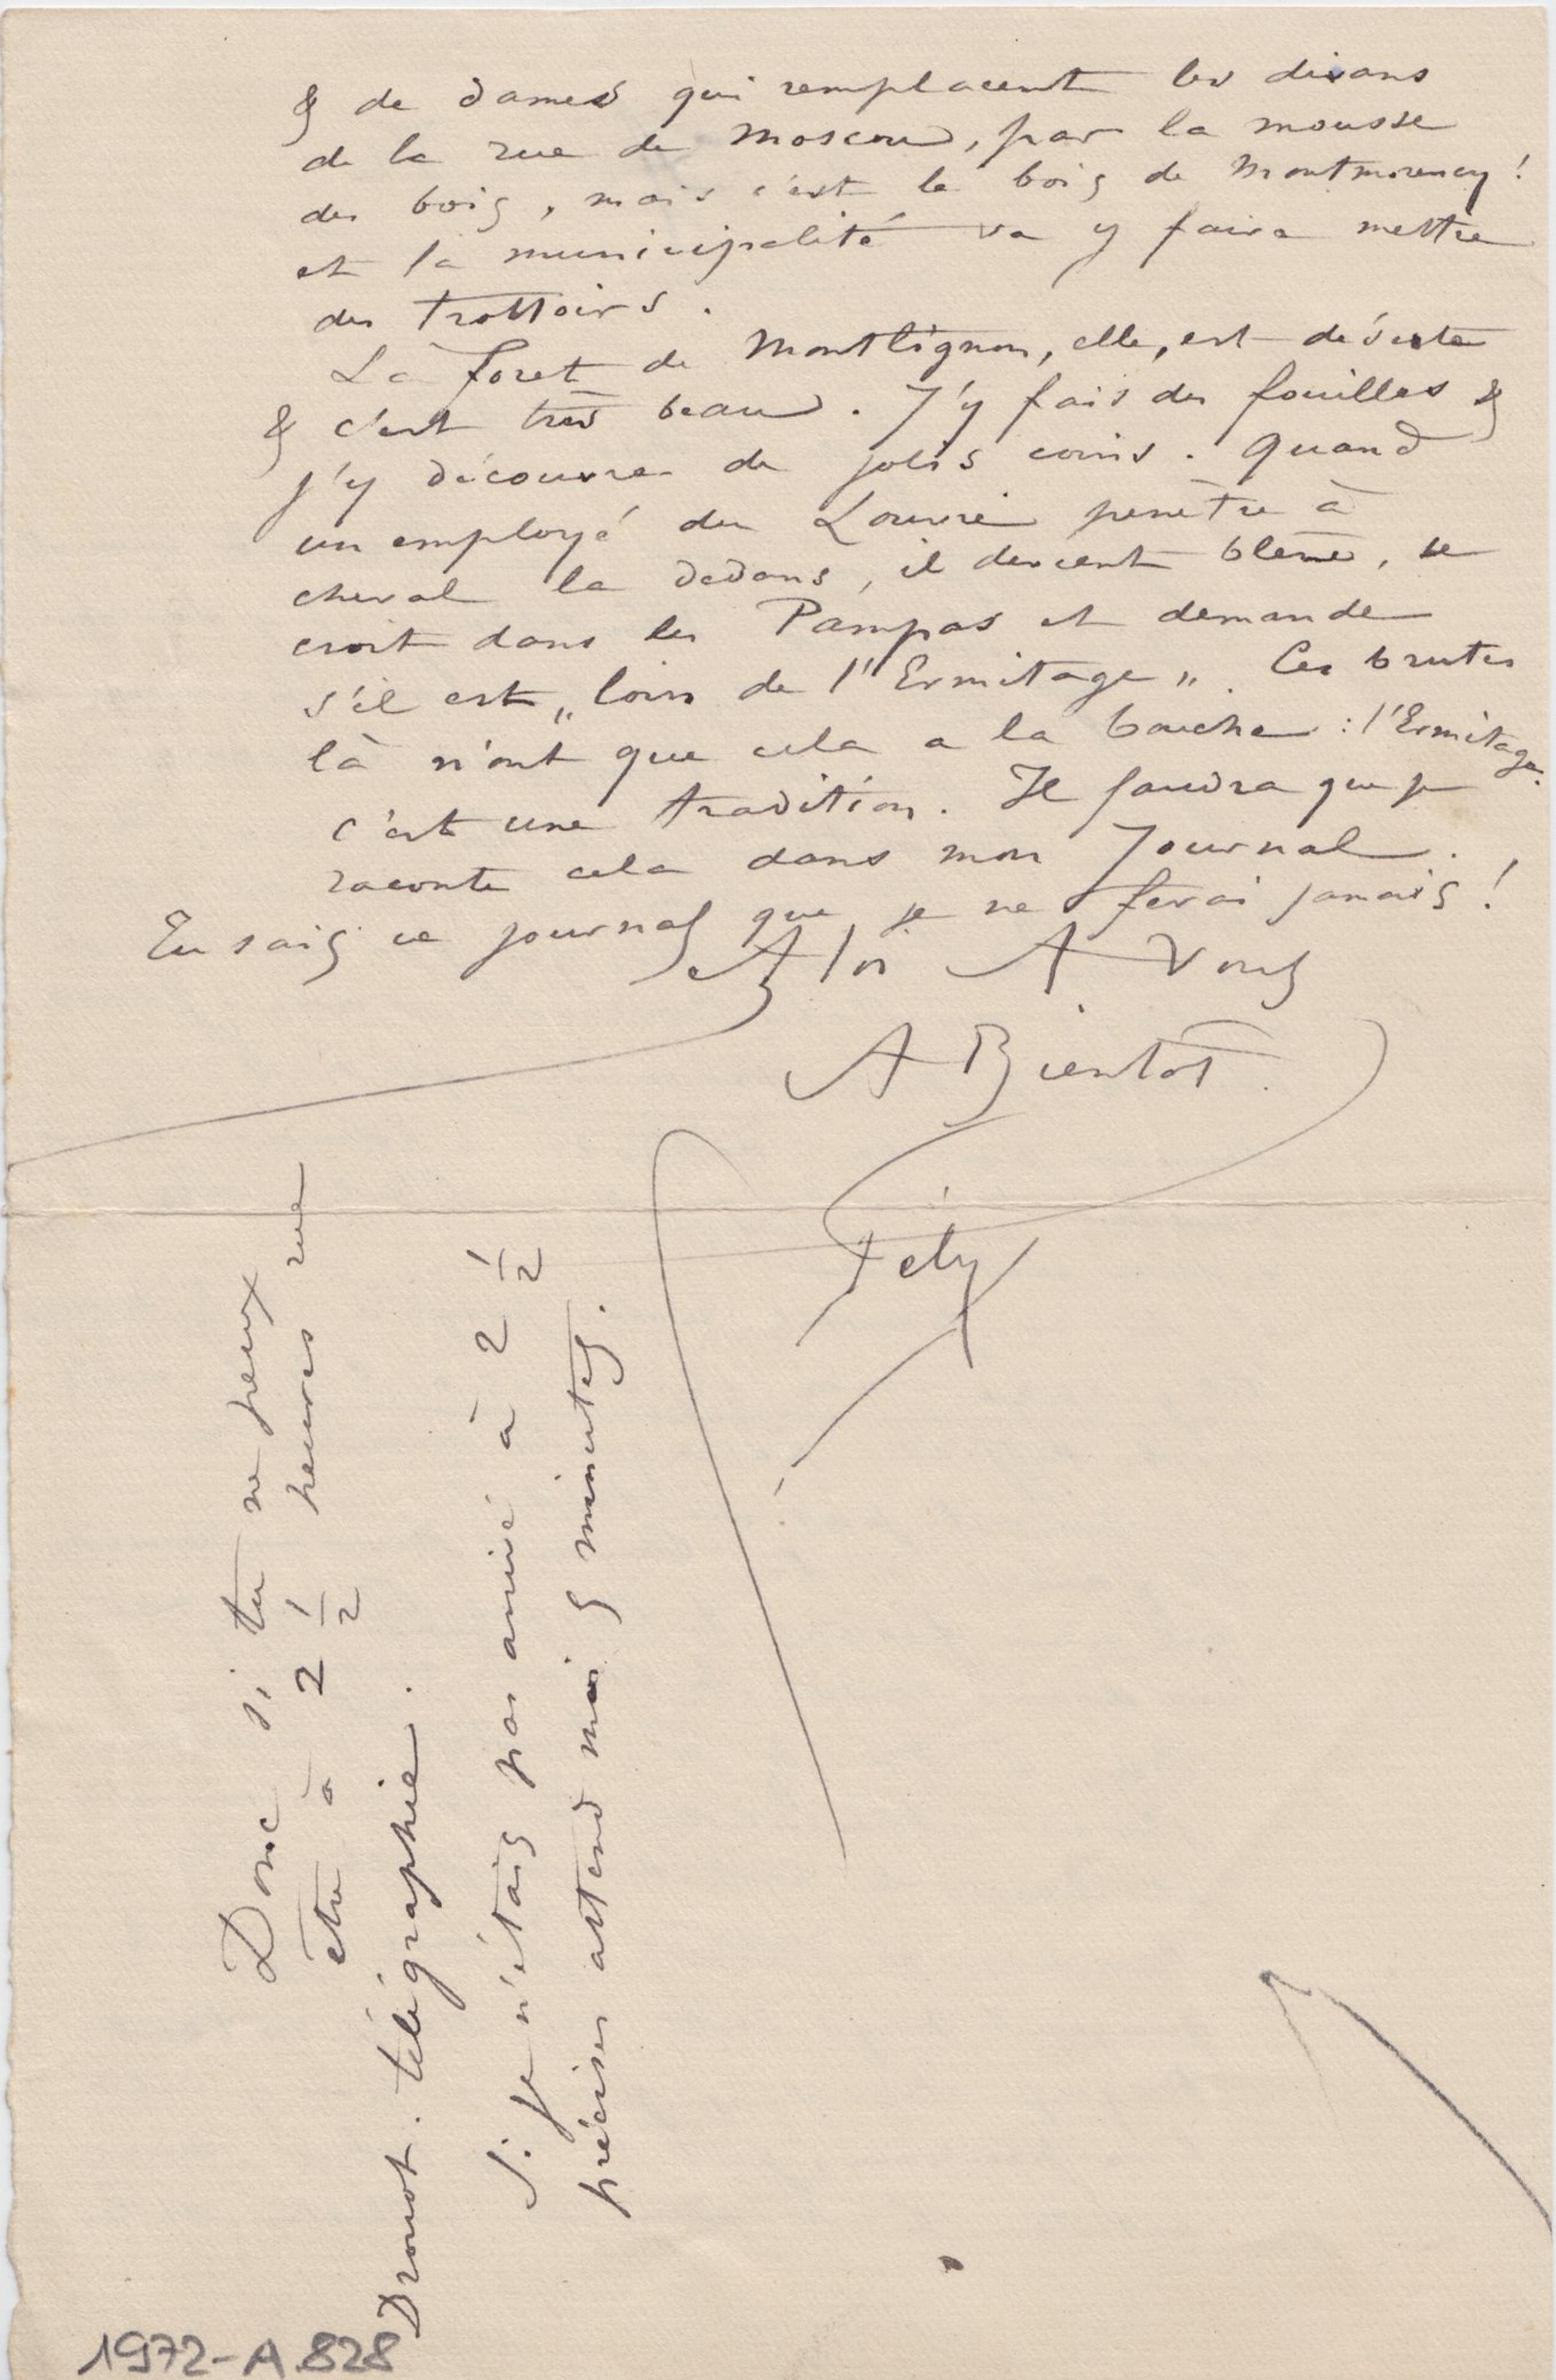 & de dames qui remplacent les divans
de la rue de Moscou, par la mousse
des bois, mais c'est le bois de Montmorency !
et la municipalité va y faire mettre
des trottoirs.
La foret de Montlignon, elle, est déserte
& c'est très beau. J'y fais des fouilles &
j'y découvre de jolis coins. Quand
un employé du Louvre penètre à
cheval la dedans, il devient blême, se
croit dans les Pampas et demande
s'il est „loin de l'Ermitage„. Ces brutes
là n'ont que cela a la bouche : l'Ermitage.
c'est une tradition. Il faudra que je
raconte cela dans mon Journal.
Tu sais ce journal que je ne ferai jamais !
A toi A Vous
A Bientôt.
Fély
Donc si tu ne peux
être à 2 1/2 heures rue
Drouot. télégraphie.
Si je n'étais pas arrivé à 2 1/2
précises attend moi 5 minutes.
1972-A.828